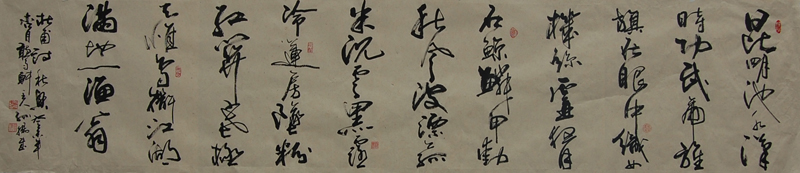 昆明池水漢
時功武帝旌
旗在眼中織女
機絲虛夜月
石鯨鱗甲動
秋風波漂菰
米沉雲黑露
冷蓮房墜粉
紅關塞極
天惟鳥道江湖
滿地一漁翁
杜甫詩秋興